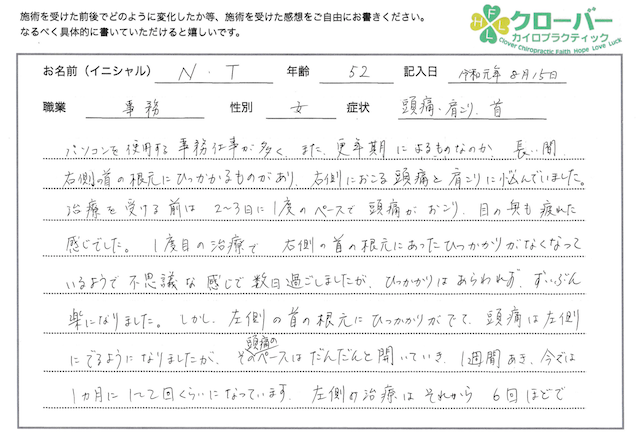 施術を受けた前後でどのように変化したか等、施術を受けた感想をご自由にお書きください。
なるべく具体的に書いていただけると嬉しいです。
HFLL
クローバー
カイロプラクティック
Clover Chiropractic Faith Hope Love Luck
お名前（イニシャル） N・T 年齢 52 記入日 令和元年8月15日
職業 事務 性別 女 症状 頭痛・肩こり、首
パソコンを使用する事務仕事が多く、また、更年期によるものなのか、長い間
右側の首の根元にひっかかるものがあり、右側におこる頭痛と肩こりに悩んでいました。
治療を受ける前は2〜3日に1度のペースで頭痛がおこり、目の奥も疲れた
感じでした。1度目の治療で右側の首の根元にあったひっかかりがなくなって
いるようで不思議な感じで数日過ごしましたが、ひっかかりはあらわれず、ずいぶん
楽になりました。しかし、左側の首の根元にひっかかりがでて、頭痛は左側
にでるようになりましたが、頭痛のペースはだんだんと開いていき、1週間あき、今では
1ヵ月に1〜2回くらいになっています。左側の治療はそれから6回ほどで